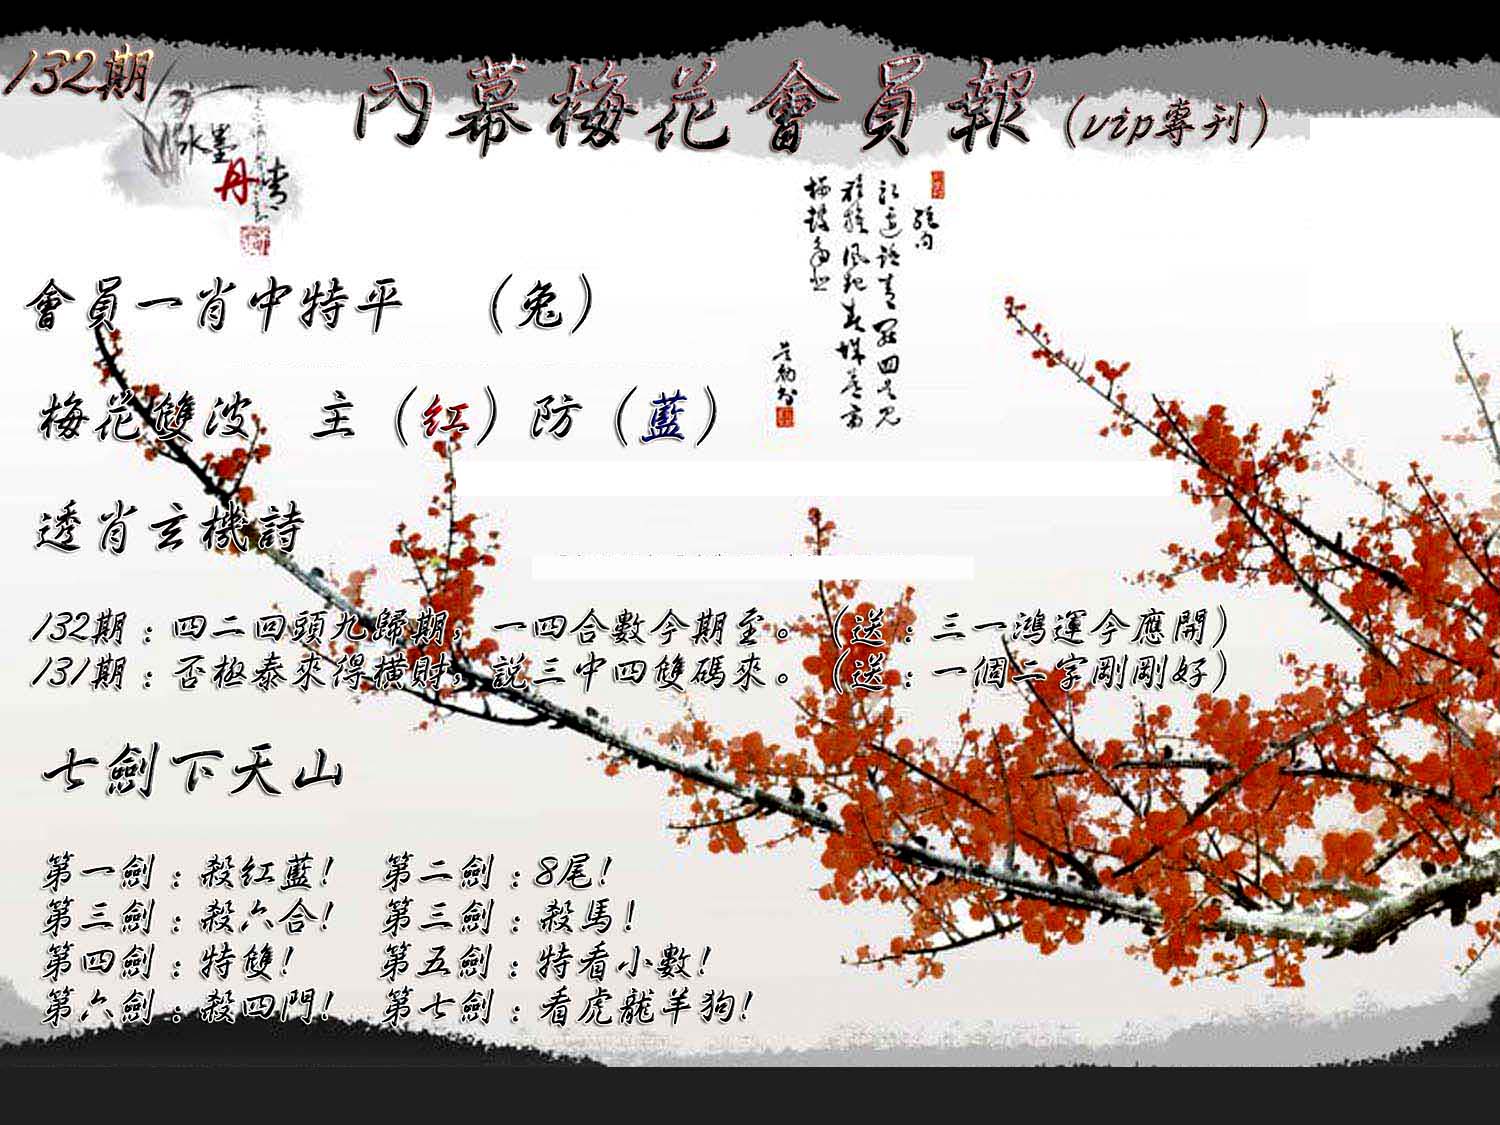 132期
內幕梅花會員報（vip專刊）
水墨
丹青
會員一肖中特平 （兔）
梅花雙波 主（紅）防（藍）
透肖玄機詩
132期：四二回頭九歸期，一四合數今期至。（送：三一鴻運今應開）
131期：否極泰來得橫財，説三中四雙碼來。（送：一個二字剛剛好）
七劍下天山
第一劍：殺紅藍！ 第二劍：8尾！
第三劍：殺六合！ 第三劍：殺馬！
第四劍：特雙！ 第五劍：特看小數！
第六劍：殺四門！ 第七劍：看虎龍羊狗！